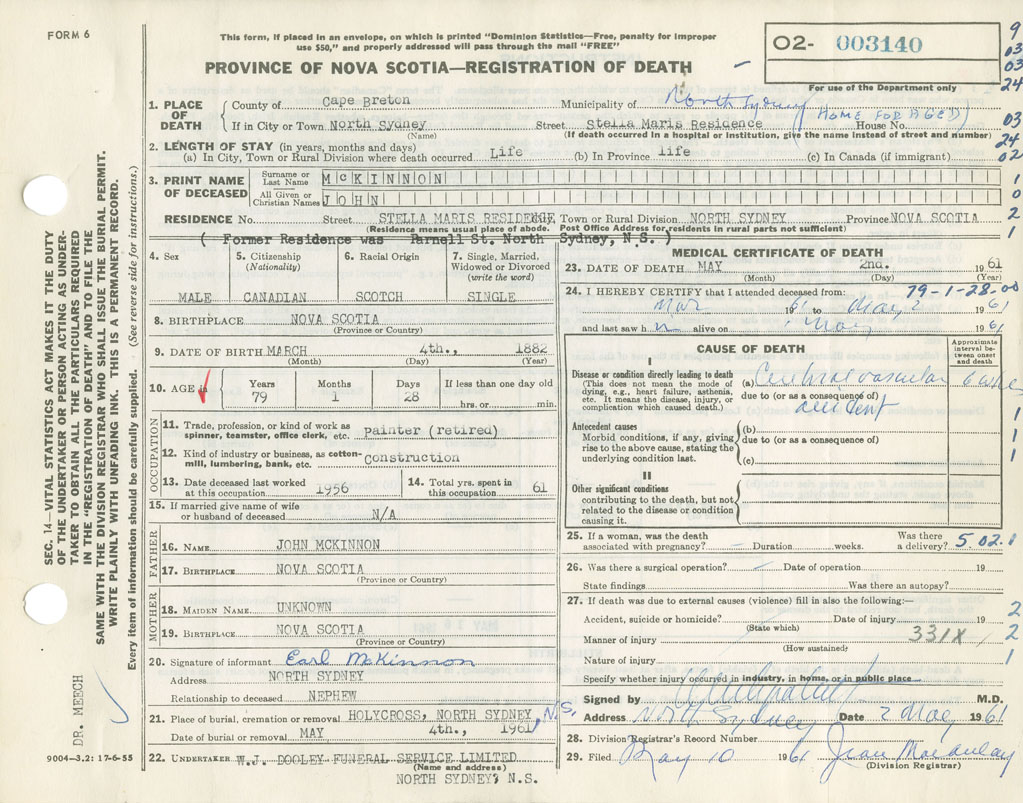 FORM 6
This form, if placed in an envelope, on which is printed "Dominion Statistics—Free, penalty for improper
use $50," and properly addressed will pass through the mail "FREE"
PROVINCE OF NOVA SCOTIA—REGISTRATION OF DEATH
02- 003140
For use of the Department only
9
03
03
24
03
24
02
1
0
2
1
1. PLACE OF DEATH
County of Cape Breton Municipality of North Sydney
If in City or Town North Sydney Street Stella Maris Residence House No. (HOME FOR AGED)
(Name) (If death occurred in a hospital or institution, give the name instead of street and number)
2. LENGTH OF STAY (in years, months and days)
(a) In City, Town or Rural Division where death occurred Life (b) In Province life (c) In Canada (if immigrant)
3. PRINT NAME OF DECEASED
Surname or Last Name McKINNON
All Given or Christian Names JOHN
RESIDENCE No. Street STELLA MARIS RESIDENCE City, Town or Rural Division NORTH SYDNEY Province NOVA SCOTIA
(Residence means usual place of abode. Post Office Address for residents in rural parts not sufficient)
( Former Residence was Parnell St. North Sydney, N.S. )
4. Sex
MALE
5. Citizenship
(Nationality)
CANADIAN
6. Racial Origin
SCOTCH
7. Single, Married,
Widowed or Divorced
(write the word)
SINGLE
8. BIRTHPLACE NOVA SCOTIA
(Province or Country)
9. DATE OF BIRTH MARCH 4th., 1882
(Month) (Day) (Year)
10. AGE in Years Months Days If less than one day old
79 1 28 hrs. or min.
OCCUPATION
11. Trade, profession, or kind of work as
spinner, teamster, office clerk, etc. painter (retired)
12. Kind of industry or business, as cotton-
mill, lumbering, bank, etc. Construction
13. Date deceased last worked
at this occupation 1956
14. Total yrs. spent in
this occupation 61
15. If married give name of wife
or husband of deceased N/A
FATHER
16. NAME JOHN MCKINNON
17. BIRTHPLACE NOVA SCOTIA
(Province or Country)
MOTHER
18. MAIDEN NAME UNKNOWN
19. BIRTHPLACE NOVA SCOTIA
(Province or Country)
20. Signature of informant Earl McKinnon
Address NORTH SYDNEY
Relationship to deceased NEPHEW
21. Place of burial, cremation or removal HOLYCROSS, NORTH SYDNEY, N.S.
Date of burial or removal MAY 4th., 1961
22. UNDERTAKER W.J. DOOLEY FUNERAL SERVICE LIMITED
(Name and address)
NORTH SYDNEY, N.S.
MEDICAL CERTIFICATE OF DEATH
23. DATE OF DEATH MAY 2nd. 1961
(Month) (Day) (Year)
24. I HEREBY CERTIFY that I attended deceased from: 79-1-28-00
Mar 1961 to May 2 1961
and last saw h m alive on 1 May 1961
CAUSE OF DEATH
Approximate
interval be-
tween onset
and death
I
Disease or condition directly leading to death
(This does not mean the mode of
dying, e.g., heart failure, asthenia,
etc. It means the disease, injury, or
complication which caused death.)
(a) Cerebral vascular 6 wks
due to (or as a consequence of)
accident
Antecedent causes
Morbid conditions, if any, giving
rise to the above cause, stating the
underlying condition last.
(b)
due to (or as a consequence of)
(c)
1
1
1
II
Other significant conditions
contributing to the death, but not
related to the disease or condition
causing it.
25. If a woman, was the death Was there
associated with pregnancy? Duration weeks. a delivery? 5 02.1
26. Was there a surgical operation? Date of operation 19
State findings Was there an autopsy?
27. If death was due to external causes (violence) fill in also the following:—
Accident, suicide or homicide? Date of injury 19 2
(State which)
Manner of injury 331X / 2
(How sustained)
Nature of injury 1
Specify whether injury occurred in industry, in home, or in public place
Signed by M.D.
Address North Sydney Date 2 May 1961
28. Division Registrar's Record Number
29. Filed May 10 1961 Jean Macaulay
(Division Registrar)
SEC. 14—VITAL STATISTICS ACT MAKES IT THE DUTY
OF THE UNDERTAKER OR PERSON ACTING AS UNDER-
TAKER TO OBTAIN ALL THE PARTICULARS REQUIRED
IN THE "REGISTRATION OF DEATH" AND TO FILE THE
SAME WITH THE DIVISION REGISTRAR WHO SHALL ISSUE THE BURIAL PERMIT.
WRITE PLAINLY WITH UNFADING INK. THIS IS A PERMANENT RECORD.
Every item of information should be carefully supplied. (See reverse side for instructions.)
DR. MEECH
9004—3.2: 17-6-55